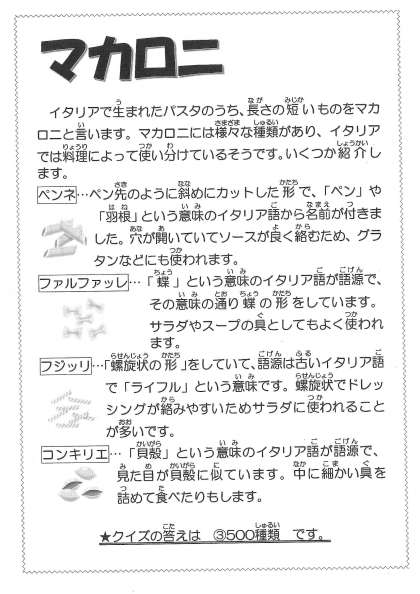 マカロニ
イタリアで生まれたパスタのうち、長さの短いものをマカ
ロニと言います。マカロニには様々な種類があり、イタリア
では料理によって使い分けているそうです。いくつか紹介し
ます。
ペンネ…ペン先のように斜めにカットした形で、「ペン」や
「羽根」という意味のイタリア語から名前が付きま
した。穴が開いていてソースが良く絡むため、グラ
タンなどにも使われます。
ファルファッレ…「蝶」という意味のイタリア語が語源で、
その意味の通り蝶の形をしています。
サラダやスープの具としてもよく使われ
ます。
フジッリ…「螺旋状の形」をしていて、語源は古いイタリア語
で「ライフル」という意味です。螺旋状でドレッ
シングが絡みやすいためサラダに使われること
が多いです。
コンキリエ…「貝殻」という意味のイタリア語が語源で、
見た目が貝殻に似ています。中に細かい具を
詰めて食べたりもします。
★クイズの答えは ③500種類 です。